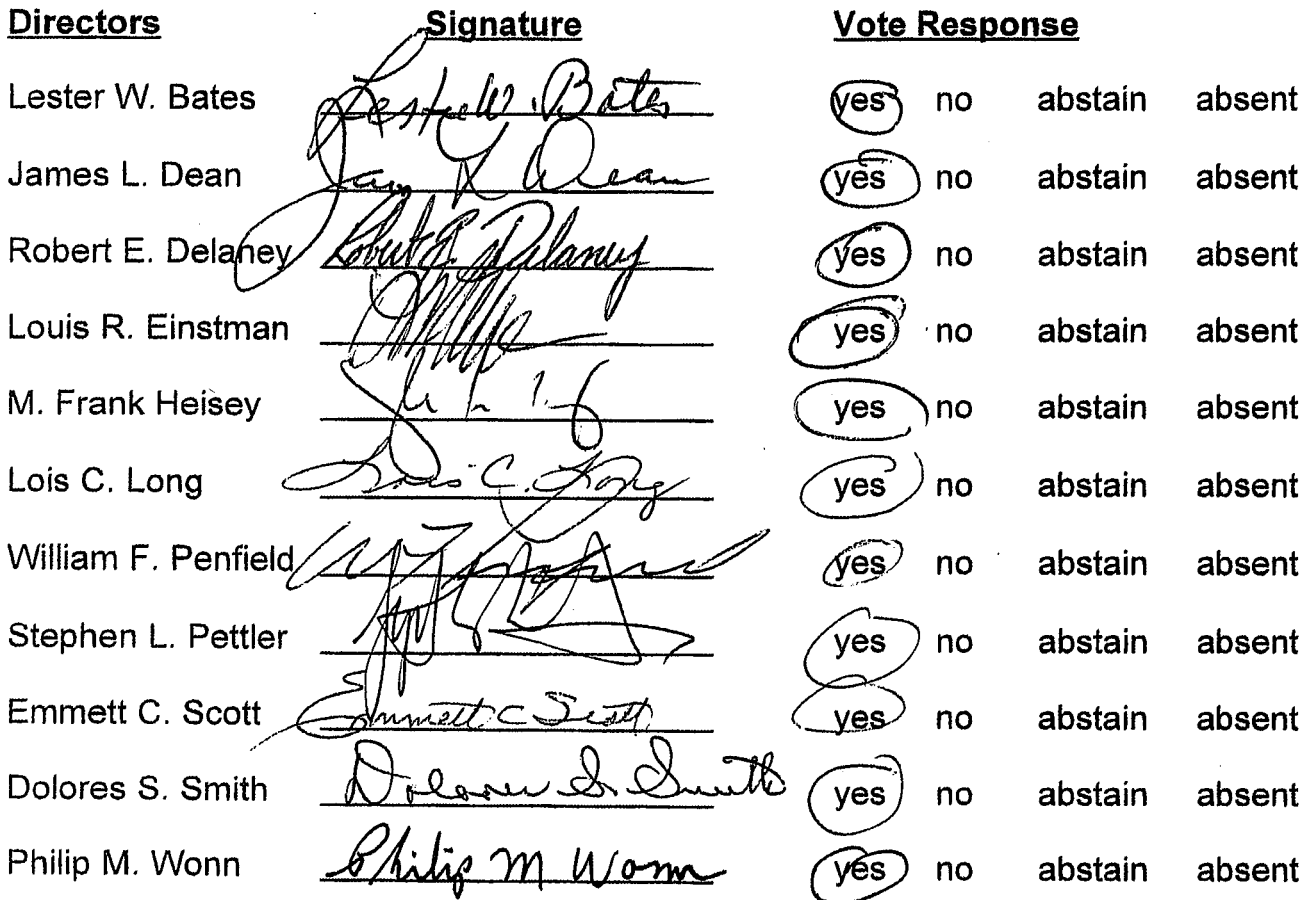 Directors Signature Vote Response
Lester W. Bates Lester W. Bates yes no abstain absent
James L. Dean James L Dean yes no abstain absent
Robert E. Delaney Robert E. Delaney yes no abstain absent
Louis R. Einstman yes no abstain absent
M. Frank Heisey yes no abstain absent
Lois C. Long Lois C. Long yes no abstain absent
William F. Penfield yes no abstain absent
Stephen L. Pettler yes no abstain absent
Emmett C. Scott Emmett C Scott yes no abstain absent
Dolores S. Smith Dolores S. Smith yes no abstain absent
Philip M. Wonn Philip M Wonn yes no abstain absent